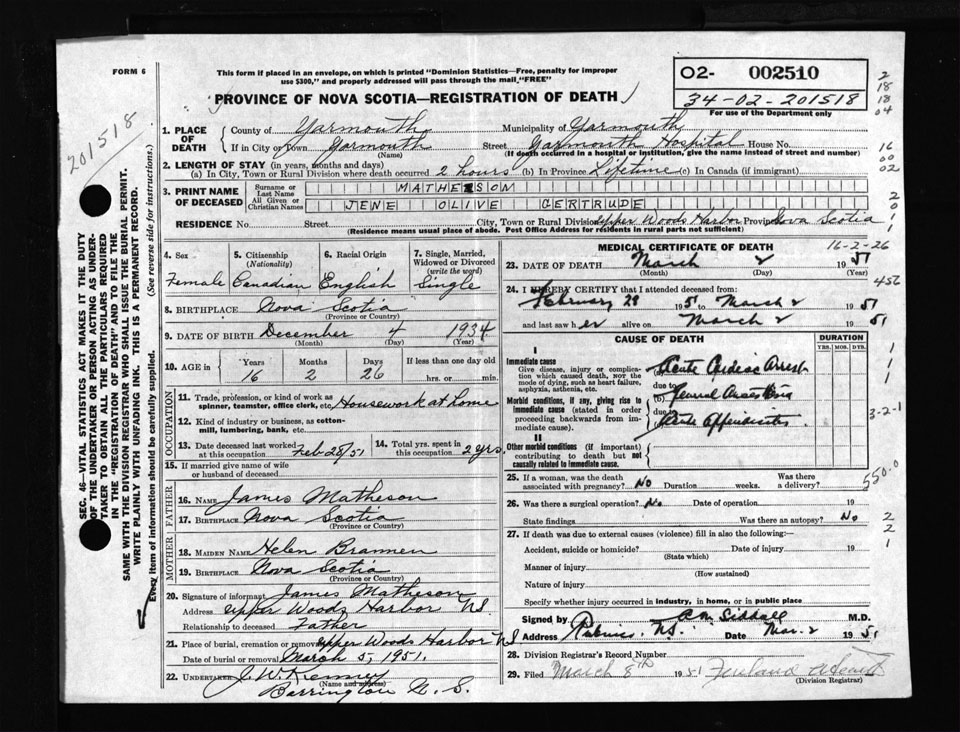 FORM 6
This form if placed in an envelope, on which is printed "Dominion Statistics—Free, penalty for improper
use $300," and properly addressed will pass through the mail, "FREE"
PROVINCE OF NOVA SCOTIA—REGISTRATION OF DEATH
O2- 002510
34-02-201518
For use of the Department only
201518
SEC. 46—VITAL STATISTICS ACT MAKES IT THE DUTY
OF THE UNDERTAKER OR PERSON ACTING AS UNDER-
TAKER TO OBTAIN ALL THE PARTICULARS REQUIRED
IN THE "REGISTRATION OF DEATH" AND TO FILE THE
SAME WITH THE DIVISION REGISTRAR WHO SHALL ISSUE THE BURIAL PERMIT.
WRITE PLAINLY WITH UNFADING INK. THIS IS A PERMANENT RECORD.
Every item of information should be carefully supplied. (See reverse side for instructions.)
1. PLACE OF DEATH
County of Yarmouth Municipality of Yarmouth
If in City or Town Yarmouth Street Yarmouth Hospital House No.
(Name) (If death occurred in a hospital or institution, give the name instead of street and number)
2. LENGTH OF STAY (in years, months and days)
(a) In City, Town or Rural Division where death occurred 2 hours (b) In Province Lifetime (c) In Canada (if immigrant)
3. PRINT NAME OF DECEASED
Surname or Last Name MATHESON
All Given or Christian Names JENE OLIVE GERTRUDE
RESIDENCE No. Street City, Town or Rural Division Upper Woods Harbor Province Nova Scotia
(Residence means usual place of abode. Post Office Address for residents in rural parts not sufficient)
4. Sex 5. Citizenship (Nationality) 6. Racial Origin 7. Single, Married, Widowed or Divorced (write the word)
Female Canadian English Single
8. BIRTHPLACE Nova Scotia
(Province or Country)
9. DATE OF BIRTH December 4 1934
(Month) (Day) (Year)
10. AGE in Years Months Days If less than one day old
16 2 26 hrs. or min.
OCCUPATION
11. Trade, profession, or kind of work as
spinner, teamster, office clerk, etc. Housework at home
12. Kind of industry or business, as cotton-
mill, lumbering, bank, etc.
13. Date deceased last worked
at this occupation Feb 28/51
14. Total yrs. spent in
this occupation 2 yrs.
15. If married give name of wife
or husband of deceased
FATHER
16. NAME James Matheson
17. BIRTHPLACE Nova Scotia
(Province or Country)
MOTHER
18. MAIDEN NAME Helen Brannen
19. BIRTHPLACE Nova Scotia
(Province or Country)
20. Signature of informant James Matheson
Address Upper Woods Harbor N.S.
Relationship to deceased Father
21. Place of burial, cremation or removal Upper Woods Harbor N.S
Date of burial or removal March 5, 1951.
22. UNDERTAKER J. W. Kenney
(Name and address)
Barrington N. S.
MEDICAL CERTIFICATE OF DEATH
16-2-26
23. DATE OF DEATH March 2 1951
(Month) (Day) (Year)
24. I HEREBY CERTIFY that I attended deceased from:
February 28 1951 to March 2 1951
and last saw her alive on March 2 1951
456
CAUSE OF DEATH
DURATION
YRS. MOS. DYS.
I
Immediate cause
Give disease, injury or complica-
tion which caused death, NOT the
mode of dying, such as heart failure,
asphyxia, asthenia, etc.
Acute Cardiac Arrest
due to
Morbid conditions, if any, giving rise to
immediate cause (stated in order
proceeding backwards from im-
mediate cause).
General Anaesthesia
due to
Acute Appendicitis
II
Other morbid conditions (if important)
contributing to death but not
causally related to immediate cause.
3-2-1
550.0
25. If a woman, was the death
associated with pregnancy? No Duration weeks. Was there
a delivery?
26. Was there a surgical operation? No Date of operation 19
State findings Was there an autopsy? No
27. If death was due to external causes (violence) fill in also the following:
Accident, suicide or homicide? Date of injury 19
(State which)
Manner of injury
(How sustained)
Nature of injury
Specify whether injury occurred in industry, in home, or in public place
Signed by Siddall M.D.
Address Pubnico, N.S. Date Mar. 2 1951
28. Division Registrar's Record Number
29. Filed March 8th 1951
(Division Registrar)
2
18
18
04
16
00
02
2
0
1
1
1
1
2
2
1